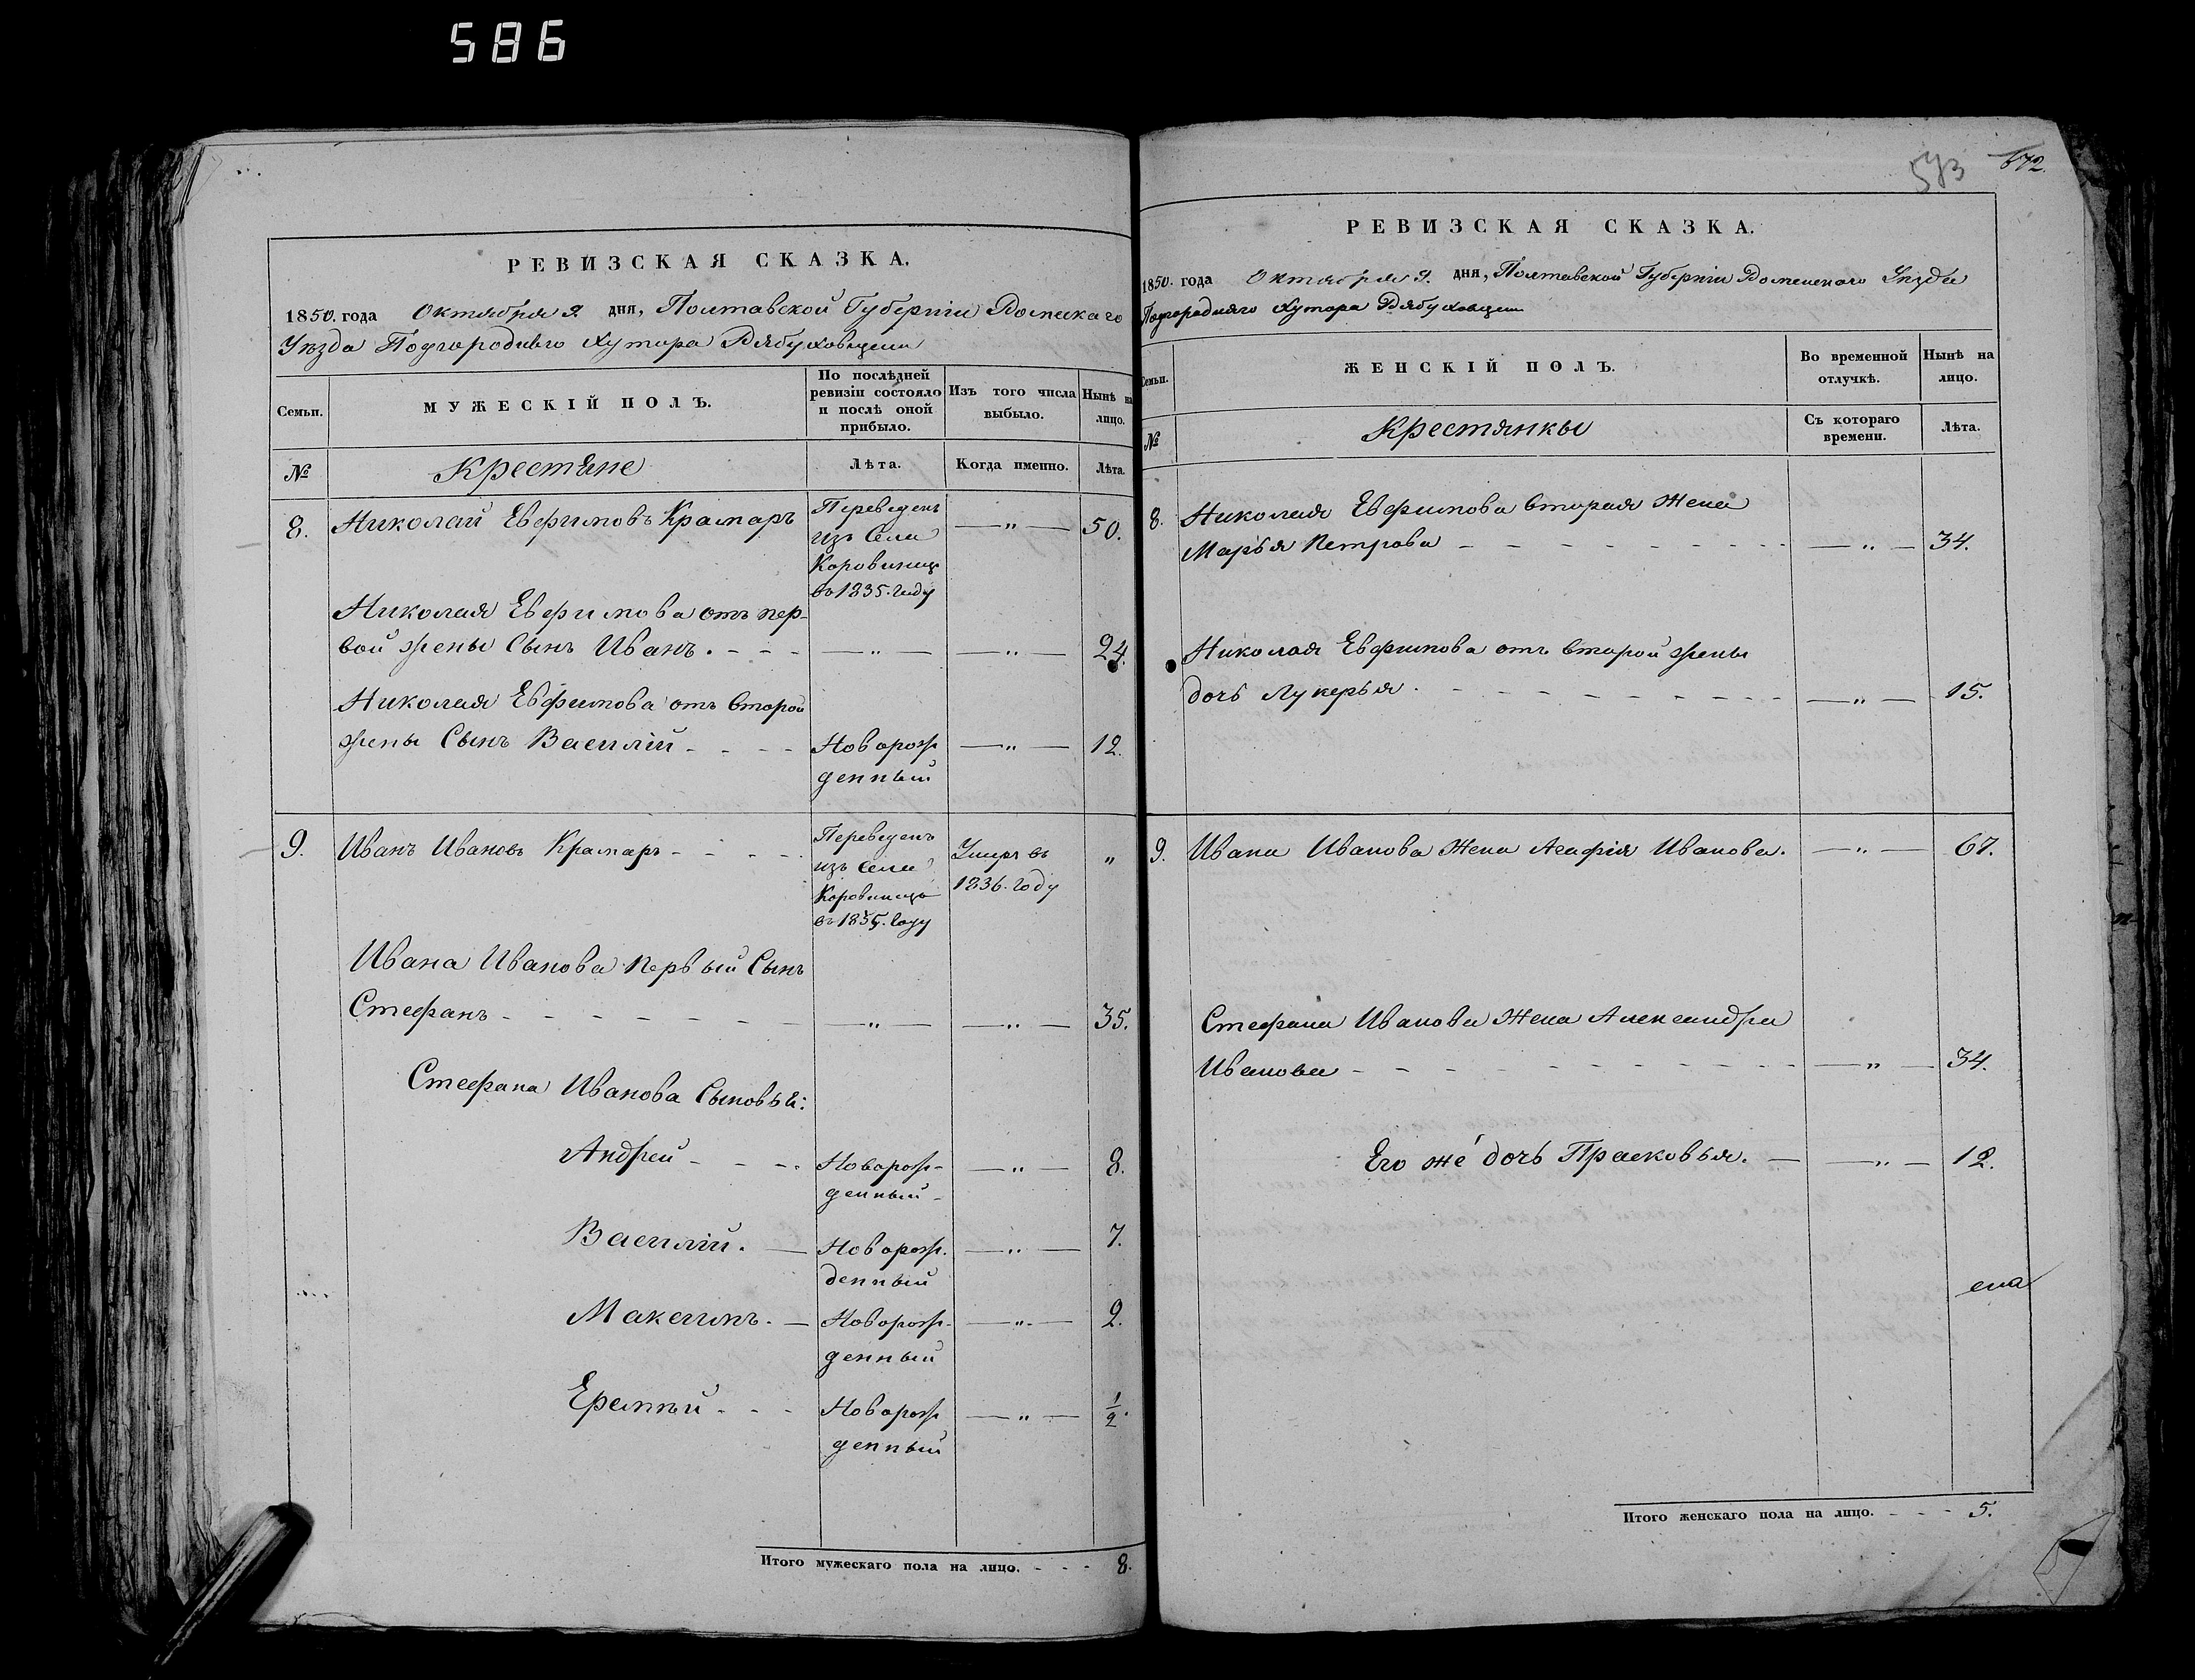 586
РЕВИЗСКАЯ СКАЗКА.
1850. года Октября 9. дня, Полтавской Губерніи Роменскаго
Уѣзда Подгороднего Хутора Рябуховщени
Семьи.
МУЖЕСКІЙ ПОЛЪ.
По послѣдней
ревизіи состояло
и послѣ оной
прибыло.
Изъ того числа
выбыло.
Нынѣ на
лицо.
№
Крестяне
Лѣта.
Когда именно.
Лѣта.
8. Николай Евфимовъ Крамаръ Переведенъ — „ — 50.
изъ Села
Коровинецъ
въ 1835. году
Николая Евфимова отъ пер-
вой жены Сынъ Иванъ. - - - — „ — — „ — 24.
Николая Евфимова отъ второй
жены Сынъ Василій - - - - Новорож — „ — 12.
денный
9. Иванъ Ивановъ Крамаръ - - - - Переведенъ Умеръ въ „
изъ Села 1836. году
Коровинецъ
въ 1835. году
Ивана Иванова первый Сынъ
Стефанъ - - - - - - - — „ — — „ — 35.
Стефана Иванова Сыновья:
Андрей - - - - Новорож- — „ — 8.
денный -
Василій. — Новорож. — „ — 7.
денный
Максимъ. — Новорож. — „ — 2.
денный
Еремѣй - - - Новорож — „ — 1/2.
денный
Итого мужескаго пола на лицо. - - - 8.
573 672.
РЕВИЗСКАЯ СКАЗКА.
1850. года Октября 9. дня, Полтавской Губерніи Роменскаго Уѣзда
Подгородняго Хутора Рябуховщени
Семьи.
ЖЕНСКІЙ ПОЛЪ.
Во временной
отлучкѣ.
Нынѣ на
лицо.
№
Крестянкы
Съ котораго
времени.
Лѣта.
8. Николая Евфимова вторая Жена
Марья Петрова - - - - - - - - - — „ — 34.
Николая Евфимова отъ второй жены
дочь Лукерья. - - - - - - - - - — „ — 15.
9. Ивана Иванова Жена Агафія Иванова. — „ — 67.
Стефана Иванова Жена Александра
Иванова - - - - - - - - - - — „ — 34.
Его же дочь Прасковья. — — „ — 12.
Итого женскаго пола на лицо. - - - 5.